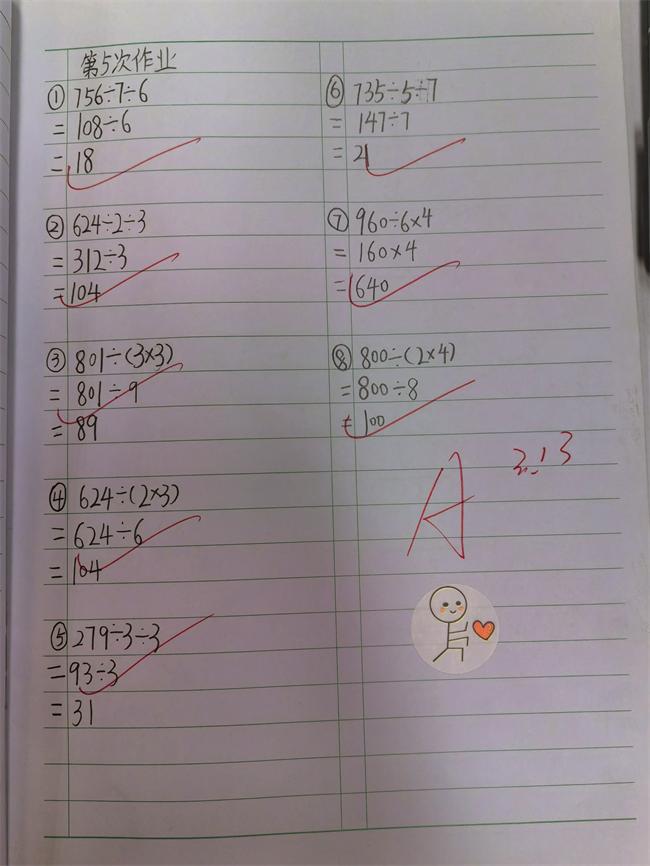 第5次作业
① 756÷7÷6
= 108÷6
= 18
② 624÷2÷3
= 312÷3
= 104
③ 801÷(3×3)
= 801÷9
= 89
④ 624÷(2×3)
= 624÷6
= 104
⑤ 279÷3÷3
= 93÷3
= 31
⑥ 735÷5÷7
= 147÷7
= 21
⑦ 960÷6×4
= 160×4
= 640
⑧ 800÷(2×4)
= 800÷8
= 100
A
3.13